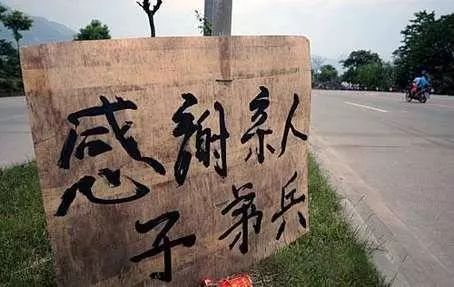 感謝亲人
子弟兵